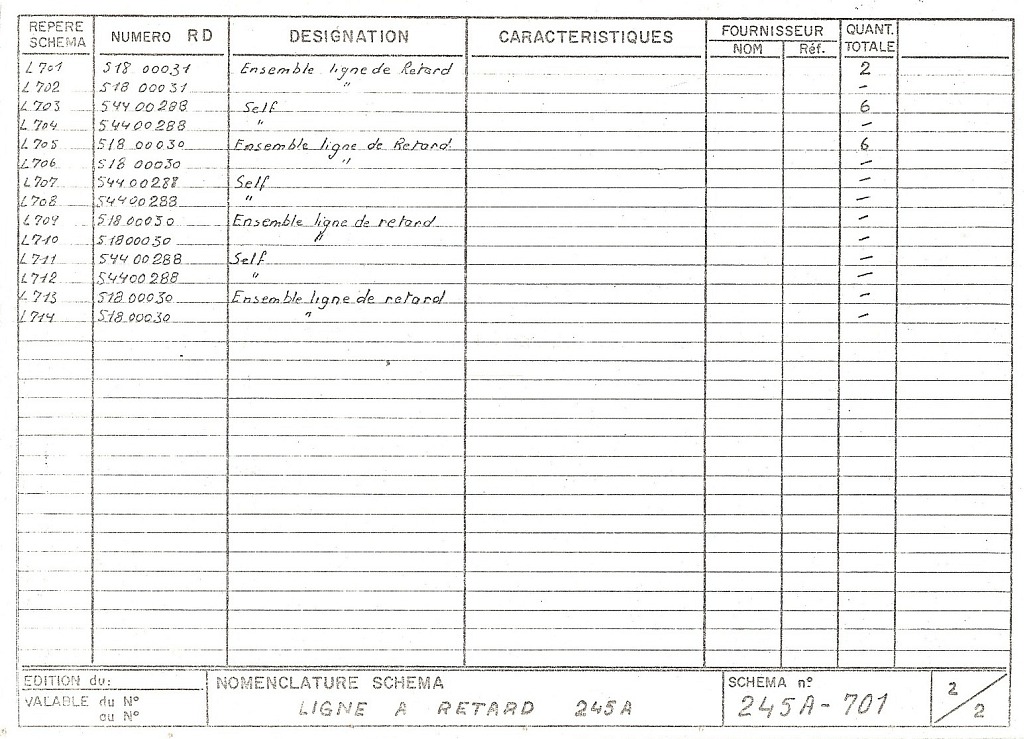 REPERE SCHEMA NUMERO RD DESIGNATION CARACTERISTIQUES FOURNISSEUR NOM Réf. QUANT. TOTALE
L701 518 00031 Ensemble ligne de Retard 2
L702 518 00031 " -
L703 54400288 Self 6
L704 54400288 " -
L705 518 00030 Ensemble ligne de Retard 6
L706 518 00030 " -
L707 54400288 Self -
L708 54400288 " -
L709 518 00030 Ensemble ligne de retard -
L710 51800030 " -
L711 54400288 Self -
L712 54400288 " -
L713 518 00030 Ensemble ligne de retard -
L714 518 00030 " -
EDITION du: NOMENCLATURE SCHEMA SCHEMA nº 2/2
VALABLE du Nº LIGNE A RETARD 245A 245A-701
au Nº